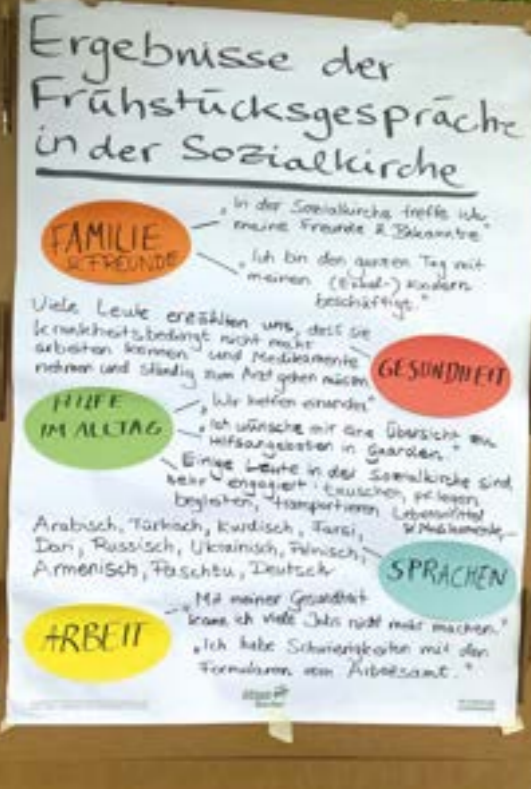 Ergebnisse der
Frühstücksgespräche
in der Sozialkirche
FAMILIE
& FREUNDE
„In der Sozialkirche treffe ich
meine Freunde & Bekannte"
„Ich bin den ganzen Tag mit
meinen (Enkel-) Kindern
beschäftigt."
Viele Leute erzählten uns, dass sie
krankheitsbedingt nicht mehr
arbeiten können und Medikamente
nehmen und ständig zum Arzt gehen müssen
GESUNDHEIT
HILFE
IM ALLTAG
„Wir helfen einander"
„Ich wünsche mir eine Übersicht zu
Hilfsangeboten in Gaarden."
Einige Leute in der Sozialkirche sind
sehr engagiert: tauschen, pflegen,
begleiten, transportieren Lebensmittel
& Medikamente,
Arabisch, Türkisch, Kurdisch, Farsi,
Dari, Russisch, Ukrainisch, Polnisch,
Armenisch, Paschtu, Deutsch
SPRACHEN
ARBEIT
„Mit meiner Gesundheit
kann ich viele Jobs nicht mehr machen."
„Ich habe Schwierigkeiten mit den
Formularen vom Arbeitsamt."